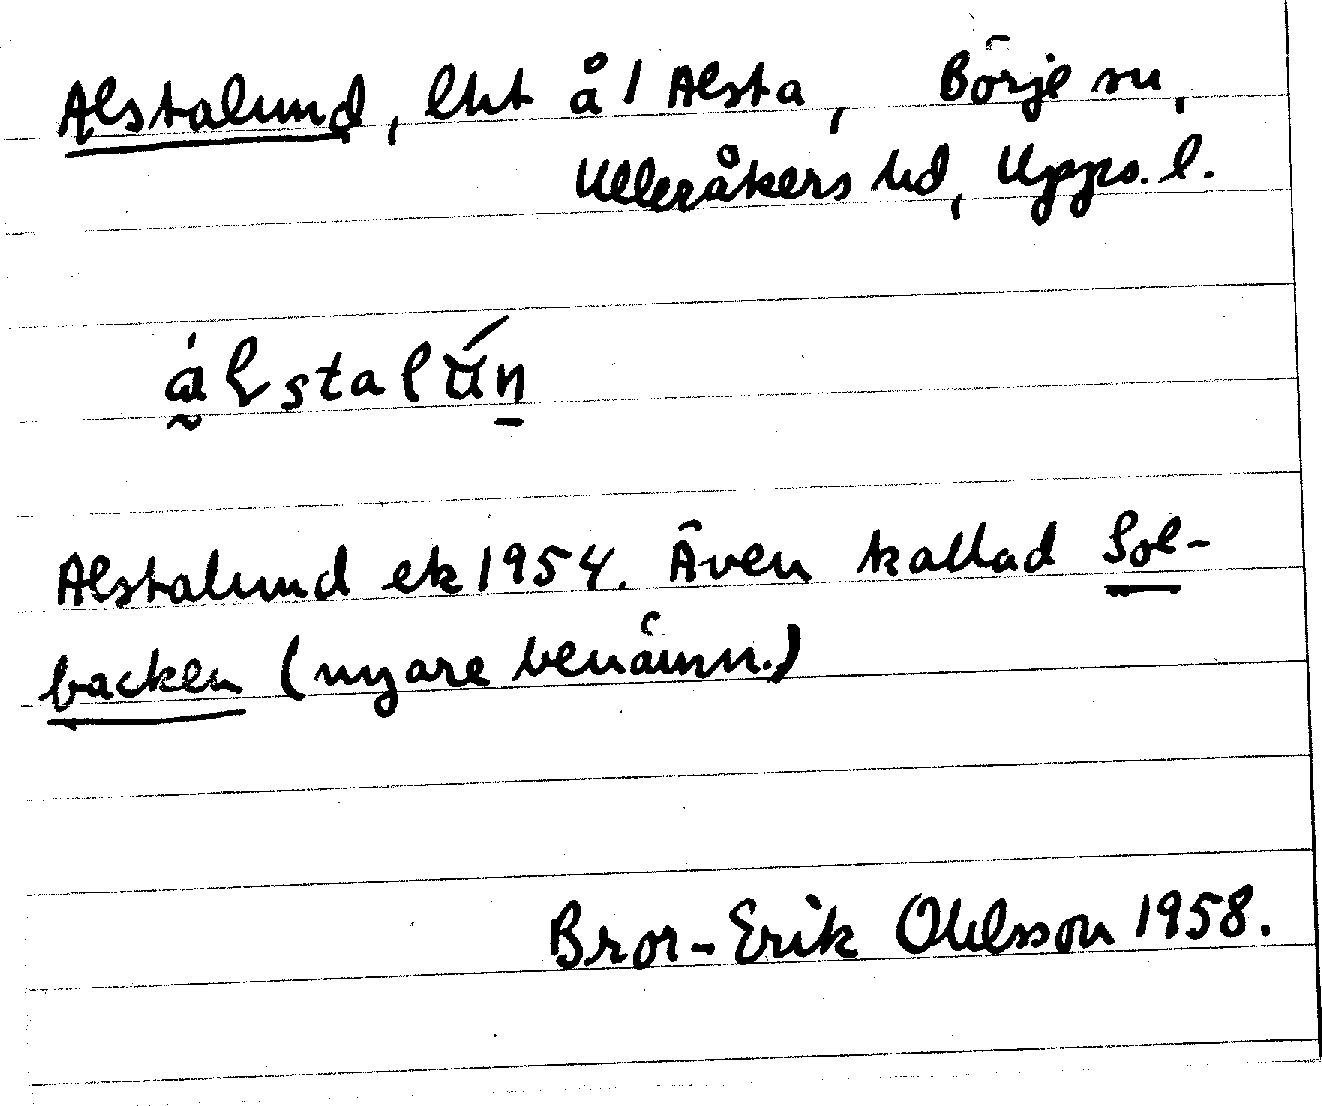 Alstalund, lht å 1 Alsta, Börje sn,
Ulleråkers hd, Upps. l.
Alstalund ek 1954. Även kallad Sol-
backen (nyare benämn.)
Bror-Erik Ohlsson 1958.